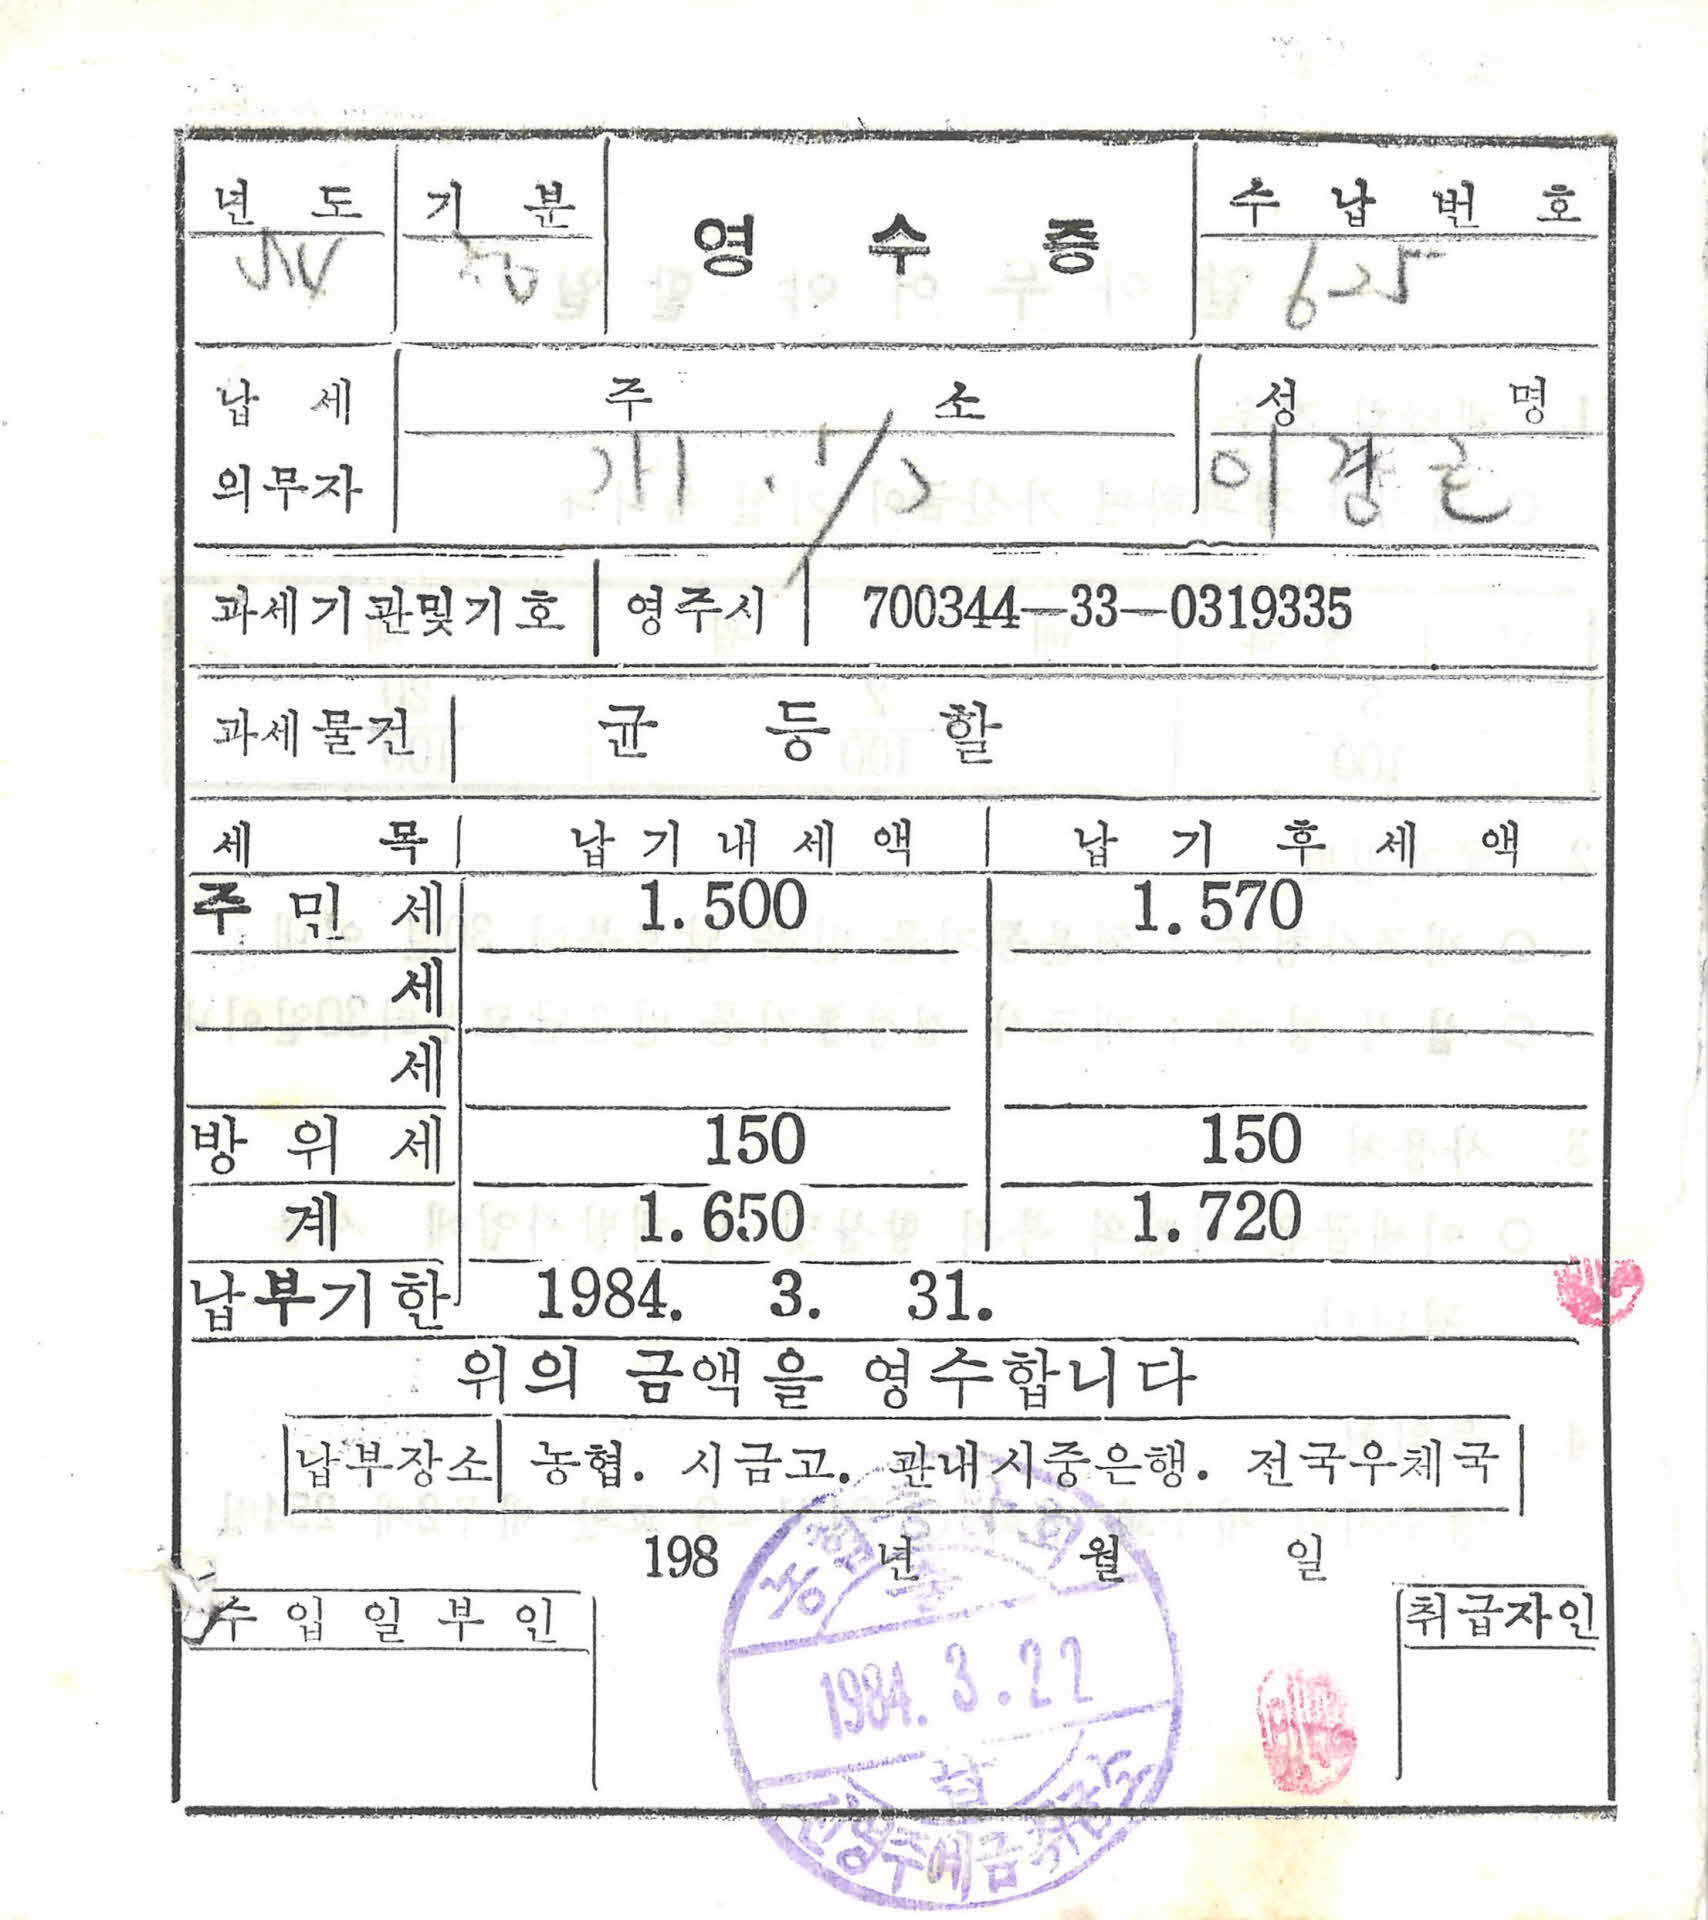 년 도 기 분 영 수 증 수 납 번 호
625
납 세 주 소 성 명
의무자 이경근
과세기관및기호 영주시 700344-33-0319335
과세물건 균 등 할
세 목 납 기 내 세 액 납 기 후 세 액
주 민 세 1.500 1.570
세
세
방 위 세 150 150
계 1.650 1.720
납부기한 1984. 3. 31.
위의 금액을 영수합니다
납부장소 농협. 시금고. 관내시중은행. 전국우체국
198 년 월 일
수 입 일 부 인 취급자인
1984. 3. 22